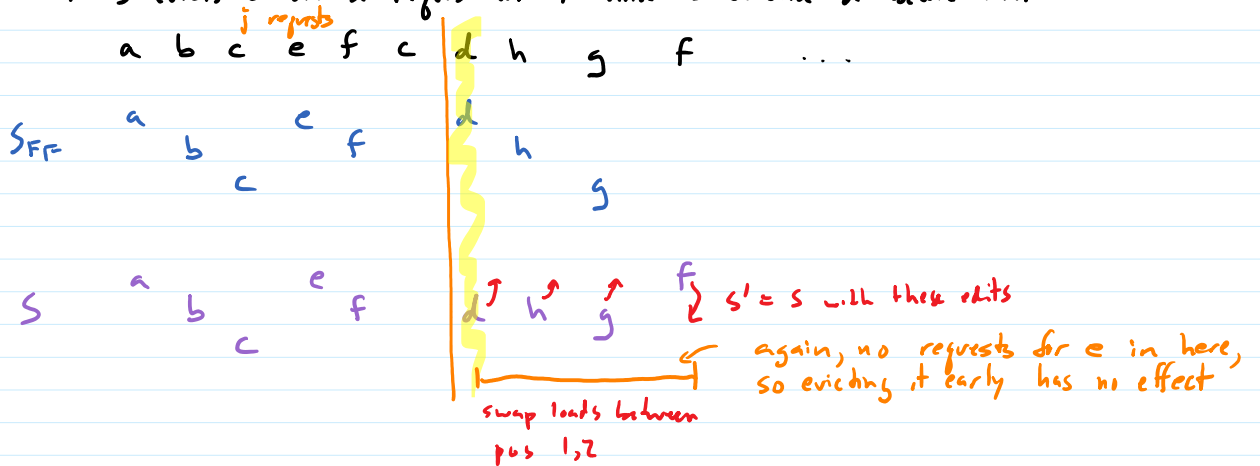 j requests
a b c e f c d h g f ...
a e d
S_FF b f h
c g
a e f
S b f d h g S' = S with these edits
c
again, no requests for e in here,
so evicting it early has no effect
swap loads between
pos 1,2